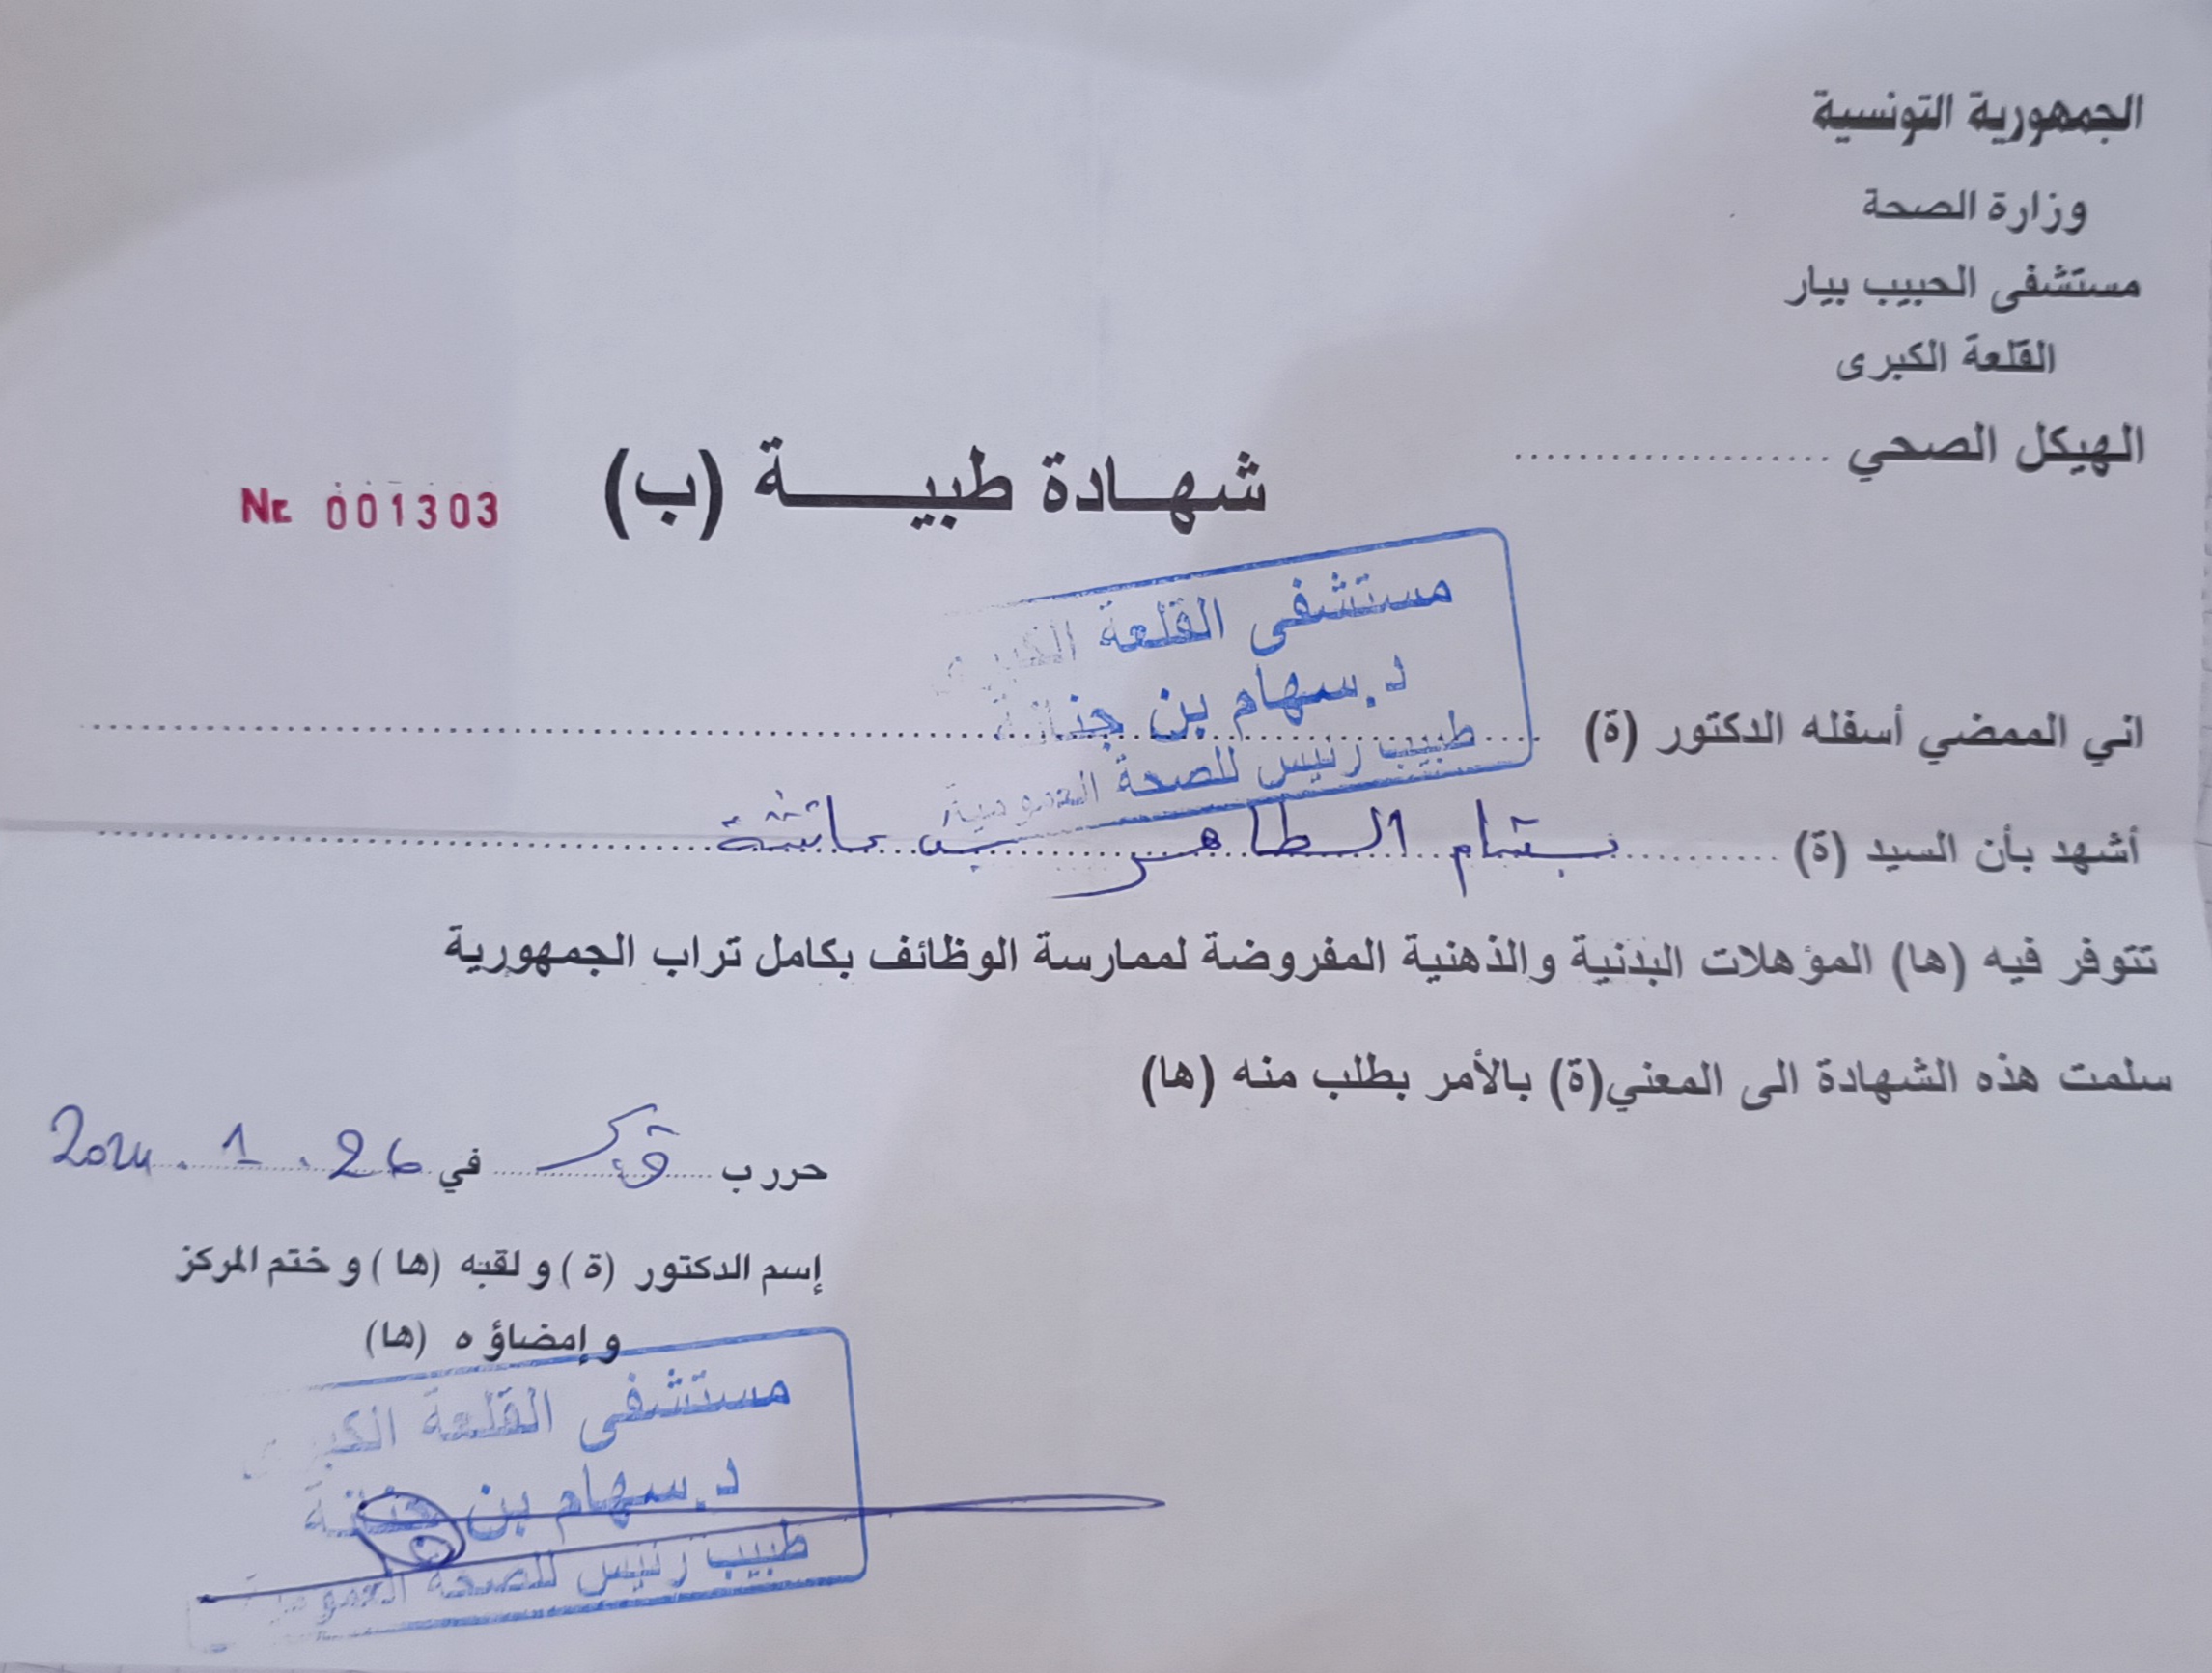 الجمهورية التونسية
وزارة الصحة
مستشفى الحبيب بيار
القلعة الكبرى
الهيكل الصحي ....................
شهادة طبية (ب)
Nr. 001303
مستشفى القلعة الكبرى
د.سهام بن جنانة
طبيب رئيس للصحة العمومية
اني الممضي أسفله الدكتور (ة)
أشهد بأن السيد (ة) الطاهر بن عائشة
تتوفر فيه (ها) المؤهلات البدنية والذهنية المفروضة لممارسة الوظائف بكامل تراب الجمهورية
سلمت هذه الشهادة الى المعني(ة) بالأمر بطلب منه (ها)
حرر ب في 26 . 1 . 2024
إسم الدكتور (ة) و لقبه (ها) و ختم المركز
و إمضاؤه (ها)
مستشفى القلعة الكبرى
د.سهام بن جنانة
طبيب رئيس للصحة العمومية